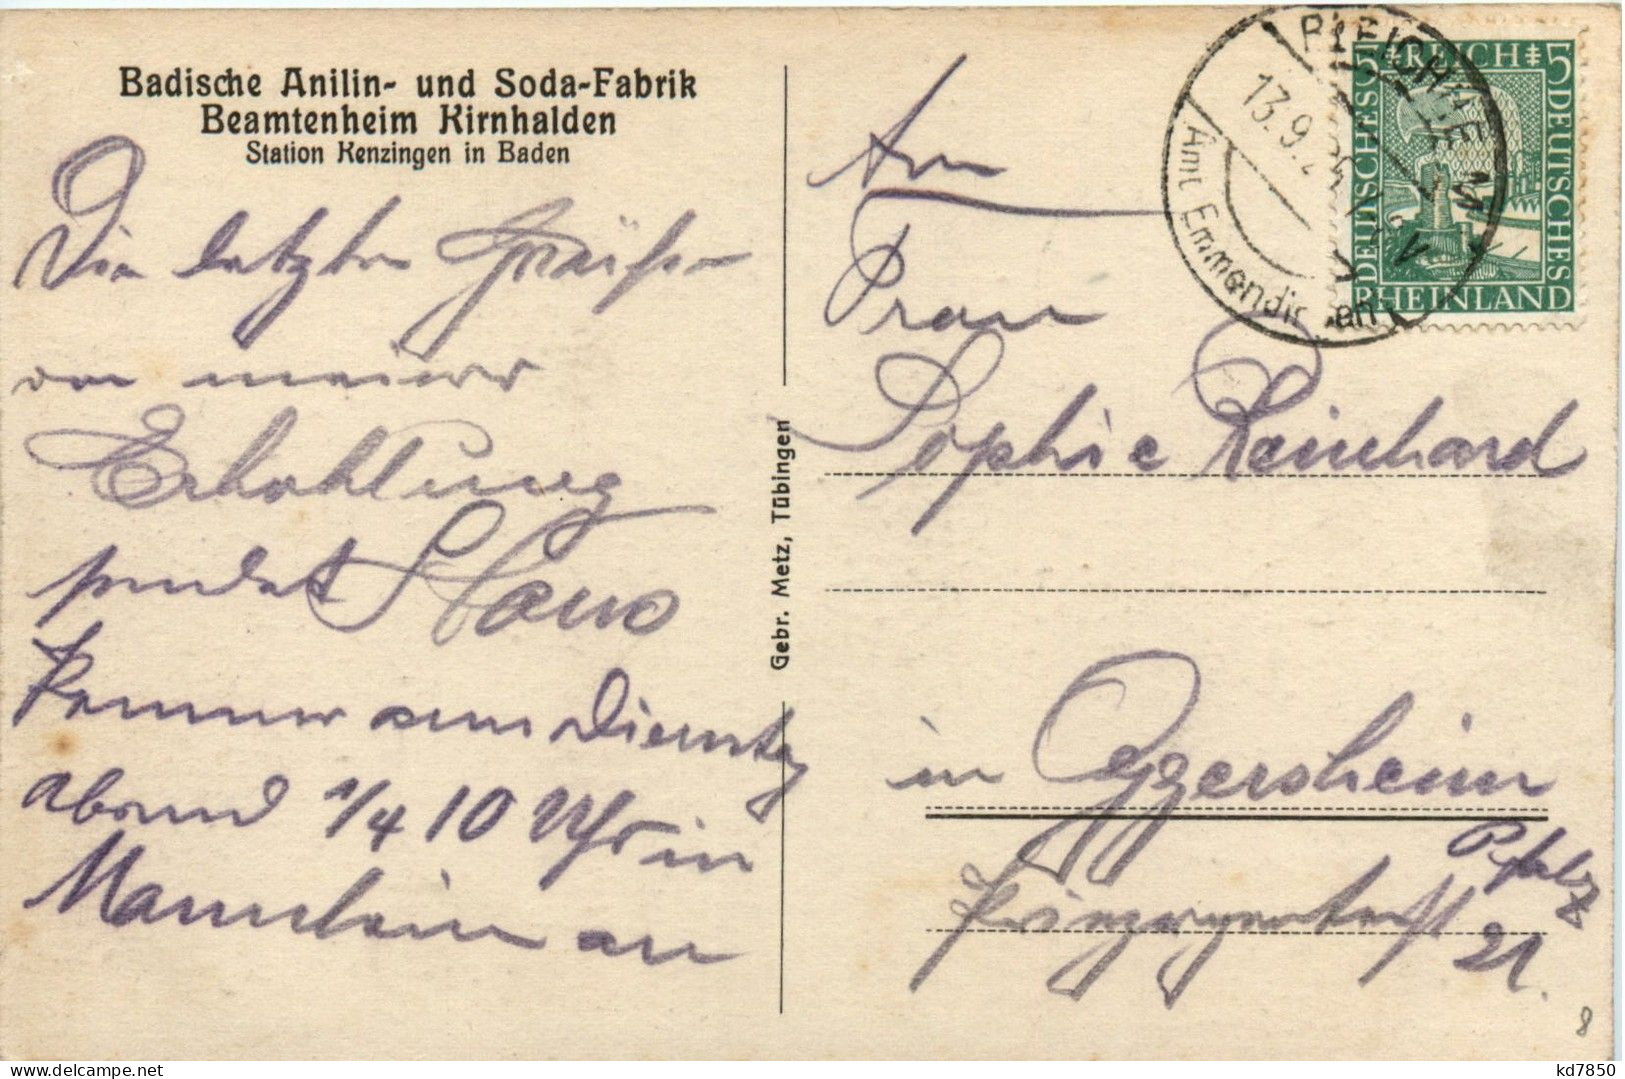 Badische Anilin- und Soda-Fabrik
Beamtenheim Kirnhalden
Station Kenzingen in Baden
Die letzten Grüße
von meiner
Erhohlung
sendet Hans
komme am Dienstag
abend 1/4 10 Uhr in
Mannheim an
Gebr. Metz, Tübingen
An
Frau
Sophie Reinhard
in Oggersheim
Pfalz
Prinzregentenst
21.
BLEICHHEIM
13.9.25
Amt Emmendingen
5 D. REICH 5
DEUTSCHES
DEUTSCHES
RHEINLAND
8
kd7850